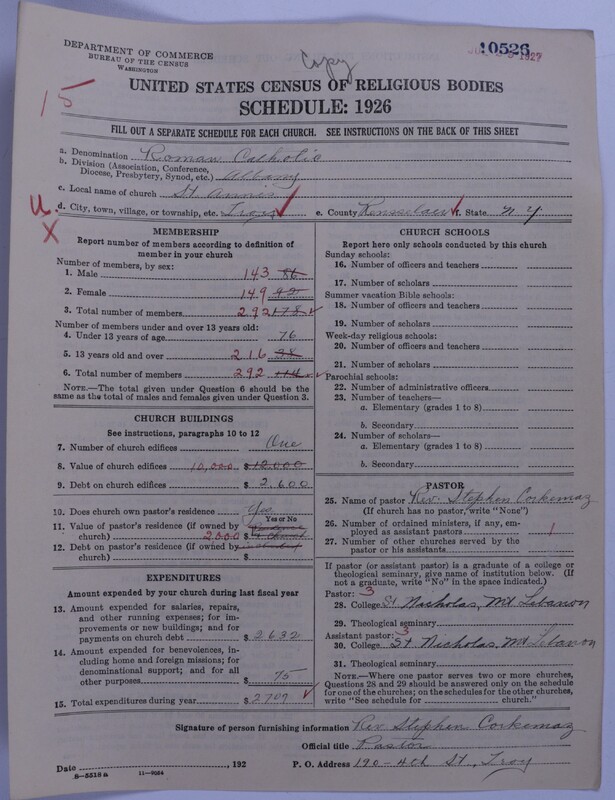 DEPARTMENT OF COMMERCE
BUREAU OF THE CENSUS
WASHINGTON
Copy
10526
1927
15
UNITED STATES CENSUS OF RELIGIOUS BODIES
SCHEDULE: 1926
FILL OUT A SEPARATE SCHEDULE FOR EACH CHURCH. SEE INSTRUCTIONS ON THE BACK OF THIS SHEET
a. Denomination Roman Catholic
b. Division (Association, Conference, Diocese, Presbytery, Synod, etc.) Albany
c. Local name of church St.
d. City, town, village, or township, etc. Troy e. County Rensselaer f. State N Y
U
X
MEMBERSHIP
Report number of members according to definition of member in your church
Number of members, by sex:
1. Male 143 86
2. Female 149 92
3. Total number of members 292 178
Number of members under and over 13 years old:
4. Under 13 years of age 76
5. 13 years old and over 216 38
6. Total number of members 292 114
NOTE.—The total given under Question 6 should be the same as the total of males and females given under Question 3.
CHURCH BUILDINGS
See instructions, paragraphs 10 to 12
7. Number of church edifices One
8. Value of church edifices 10,000 $ 12.000
9. Debt on church edifices $ 2,600
10. Does church own pastor's residence? Yes
Yes or No
11. Value of pastor's residence (if owned by church) 2000 $
12. Debt on pastor's residence (if owned by church) $
EXPENDITURES
Amount expended by your church during last fiscal year
13. Amount expended for salaries, repairs, and other running expenses; for improvements or new buildings; and for payments on church debt $ 2632
14. Amount expended for benevolences, including home and foreign missions; for denominational support; and for all other purposes $ 75
15. Total expenditures during year $ 2707
CHURCH SCHOOLS
Report here only schools conducted by this church
Sunday schools:
16. Number of officers and teachers
17. Number of scholars
Summer vacation Bible schools:
18. Number of officers and teachers
19. Number of scholars
Week-day religious schools:
20. Number of officers and teachers
21. Number of scholars
Parochial schools:
22. Number of administrative officers
23. Number of teachers—
a. Elementary (grades 1 to 8)
b. Secondary
24. Number of scholars—
a. Elementary (grades 1 to 8)
b. Secondary
PASTOR
25. Name of pastor Rev. Stephen Corkemaz
(If church has no pastor, write "None")
26. Number of ordained ministers, if any, employed as assistant pastors 1
27. Number of other churches served by the pastor or his assistants
If pastor (or assistant pastor) is a graduate of a college or theological seminary, give name of institution below. (If not a graduate, write "No" in the space indicated.)
Pastor: 3
28. College St Nicholas, Mt Lebanon
29. Theological seminary
Assistant pastor: 3
30. College St Nicholas, Mt Lebanon
31. Theological seminary
NOTE.—Where one pastor serves two or more churches, Questions 28 and 29 should be answered only on the schedule for one of the churches; on the schedules for the other churches, write "See schedule for church."
Signature of person furnishing information Rev Stephen Corkemaz
Official title Pastor
Date , 192 P. O. Address 190-4th St, Troy
8-5518a 11-9054